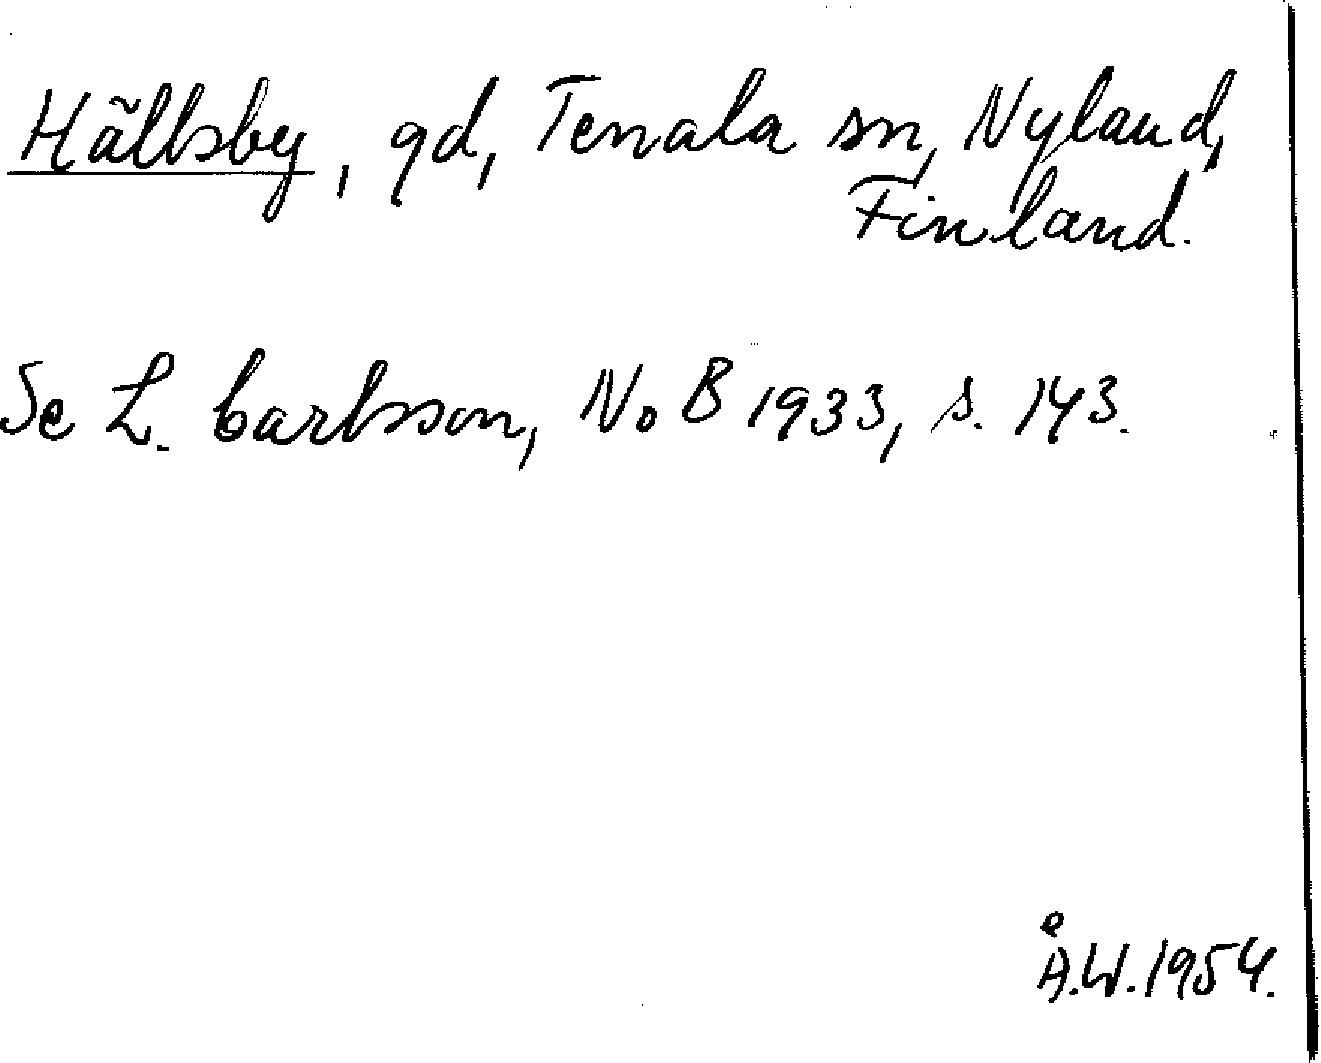 Hällsby, gd, Tenala sn, Nyland,
Finland.
Se L. Carlsson, NoB 1933, s. 143.
Å.W. 1954.